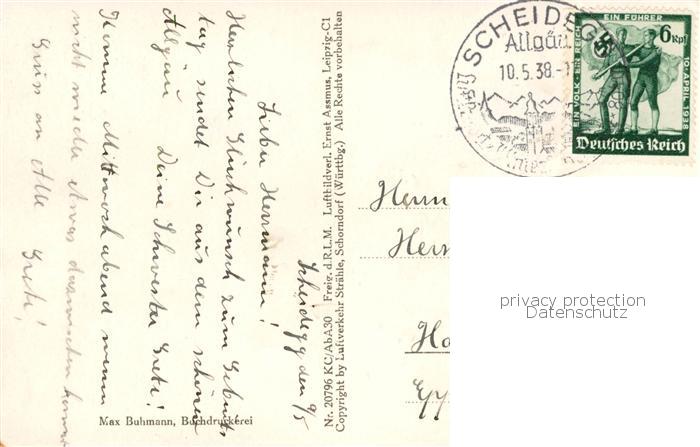 Scheidegg den 9/5
Lieber Herrmann!
Herzlichen Glückwunsch zum Geburts-
tag sendet Dir aus dem schönen
Allgäu
Deine Schwester Grete!
Komme Mittwoch abend wenn
nicht wieder etwas dazwischen kommt
Gruss an Alle Grete!
Max Buhmann, Buchdruckerei
Nr. 20796 KC/AbA30 Freig. d.R.L.M. Luftbildverl. Ernst Assmus, Leipzig-C1
Copyright by Luftverkehr Strähle, Schorndorf (Württbg.) Alle Rechte vorbehalten
SCHEIDEGG
Allgäu
10.5.38.-
EIN VOLK EIN REICH
EIN FÜHRER
10. APRIL 1938
6 Rpf
Deutsches Reich
privacy protection
Datenschutz